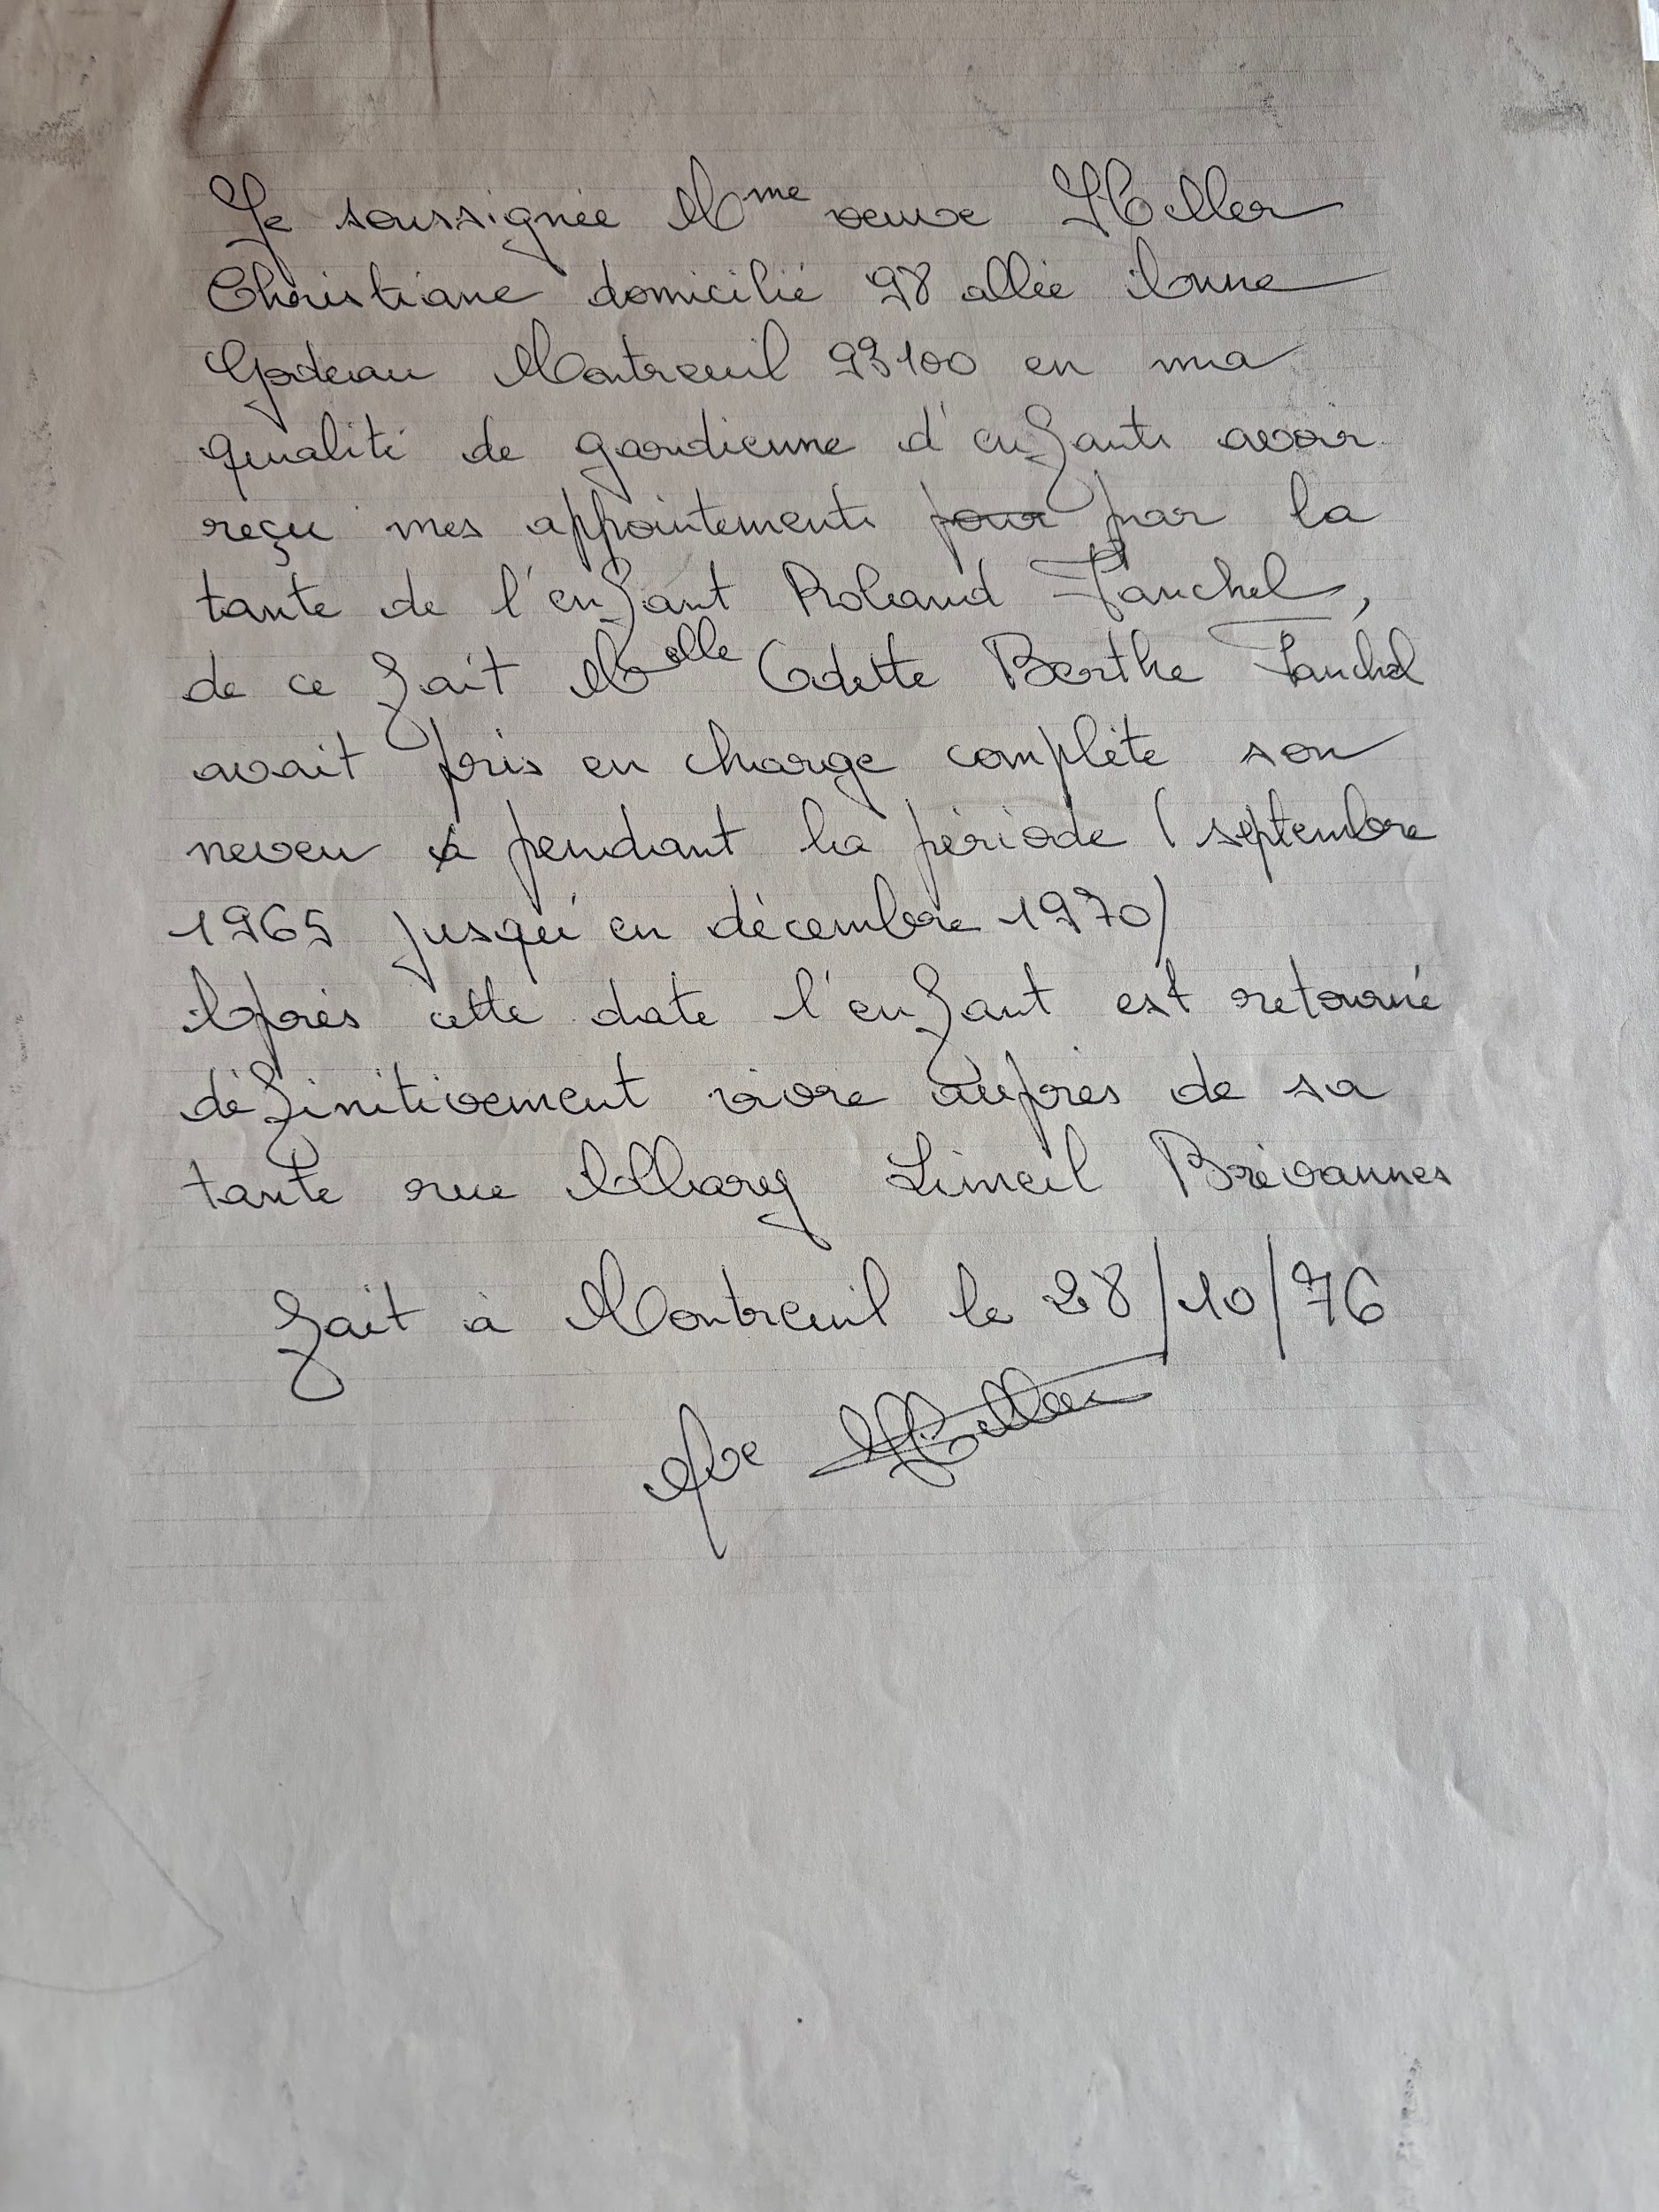 Je soussignée Mme veuve Heller
Christiane domicilié 98 allée Anne
Godeau Montreuil 93100 en ma
qualité de gardienne d'enfants avoir
reçu mes appointements pour par la
tante de l'enfant Roland Fauchel,
de ce fait Melle Odette Berthe Fauchel
avait pris en charge complète son
neveu pendant la période (septembre
1965 jusqu'en décembre 1970)
Après cette date l'enfant est retourné
définitivement vivre auprès de sa
tante rue Albary Limeil Brévannes
fait à Montreuil le 28/10/76
Mve Heller